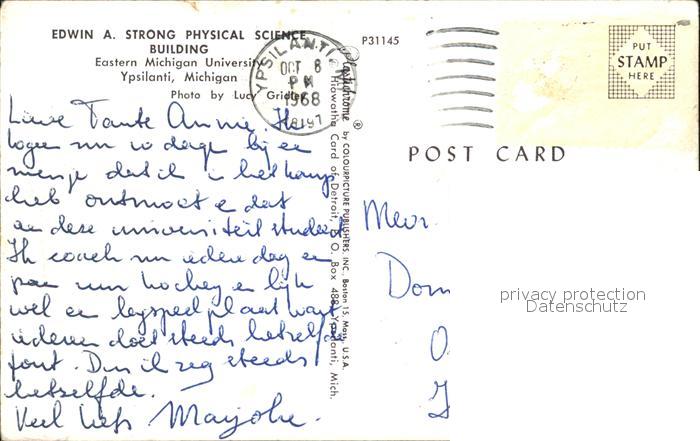 EDWIN A. STRONG PHYSICAL SCIENCE
BUILDING
Eastern Michigan University
Ypsilanti, Michigan
Photo by Lucy Gridley
P31145
YPSILANTI
OCT 8
PM
1968
48197
Plastichrome ® by COLOURPICTURE PUBLISHERS, INC. Boston 15, Mass., U.S.A.
Hiawatha Card of Detroit, P.O. Box 488, Ypsilanti, Mich.
PUT
STAMP
HERE
POST CARD
Lieve Tante Annie, Ik
logeer nu 10 dagen bij een
meisje dat ik in het kamp
heb ontmoet e dat
aan deze universiteit studeert
Ik coach nu iedere dag een
paar uur hockey en lijk
wel een legspeel plaat want
iedereen doet steeds hetzelfde
fout. Dus ik zeg steeds
hetzelfde.
Veel liefs Marjolie.
Mevr.
Dom
O
privacy protection
Datenschutz